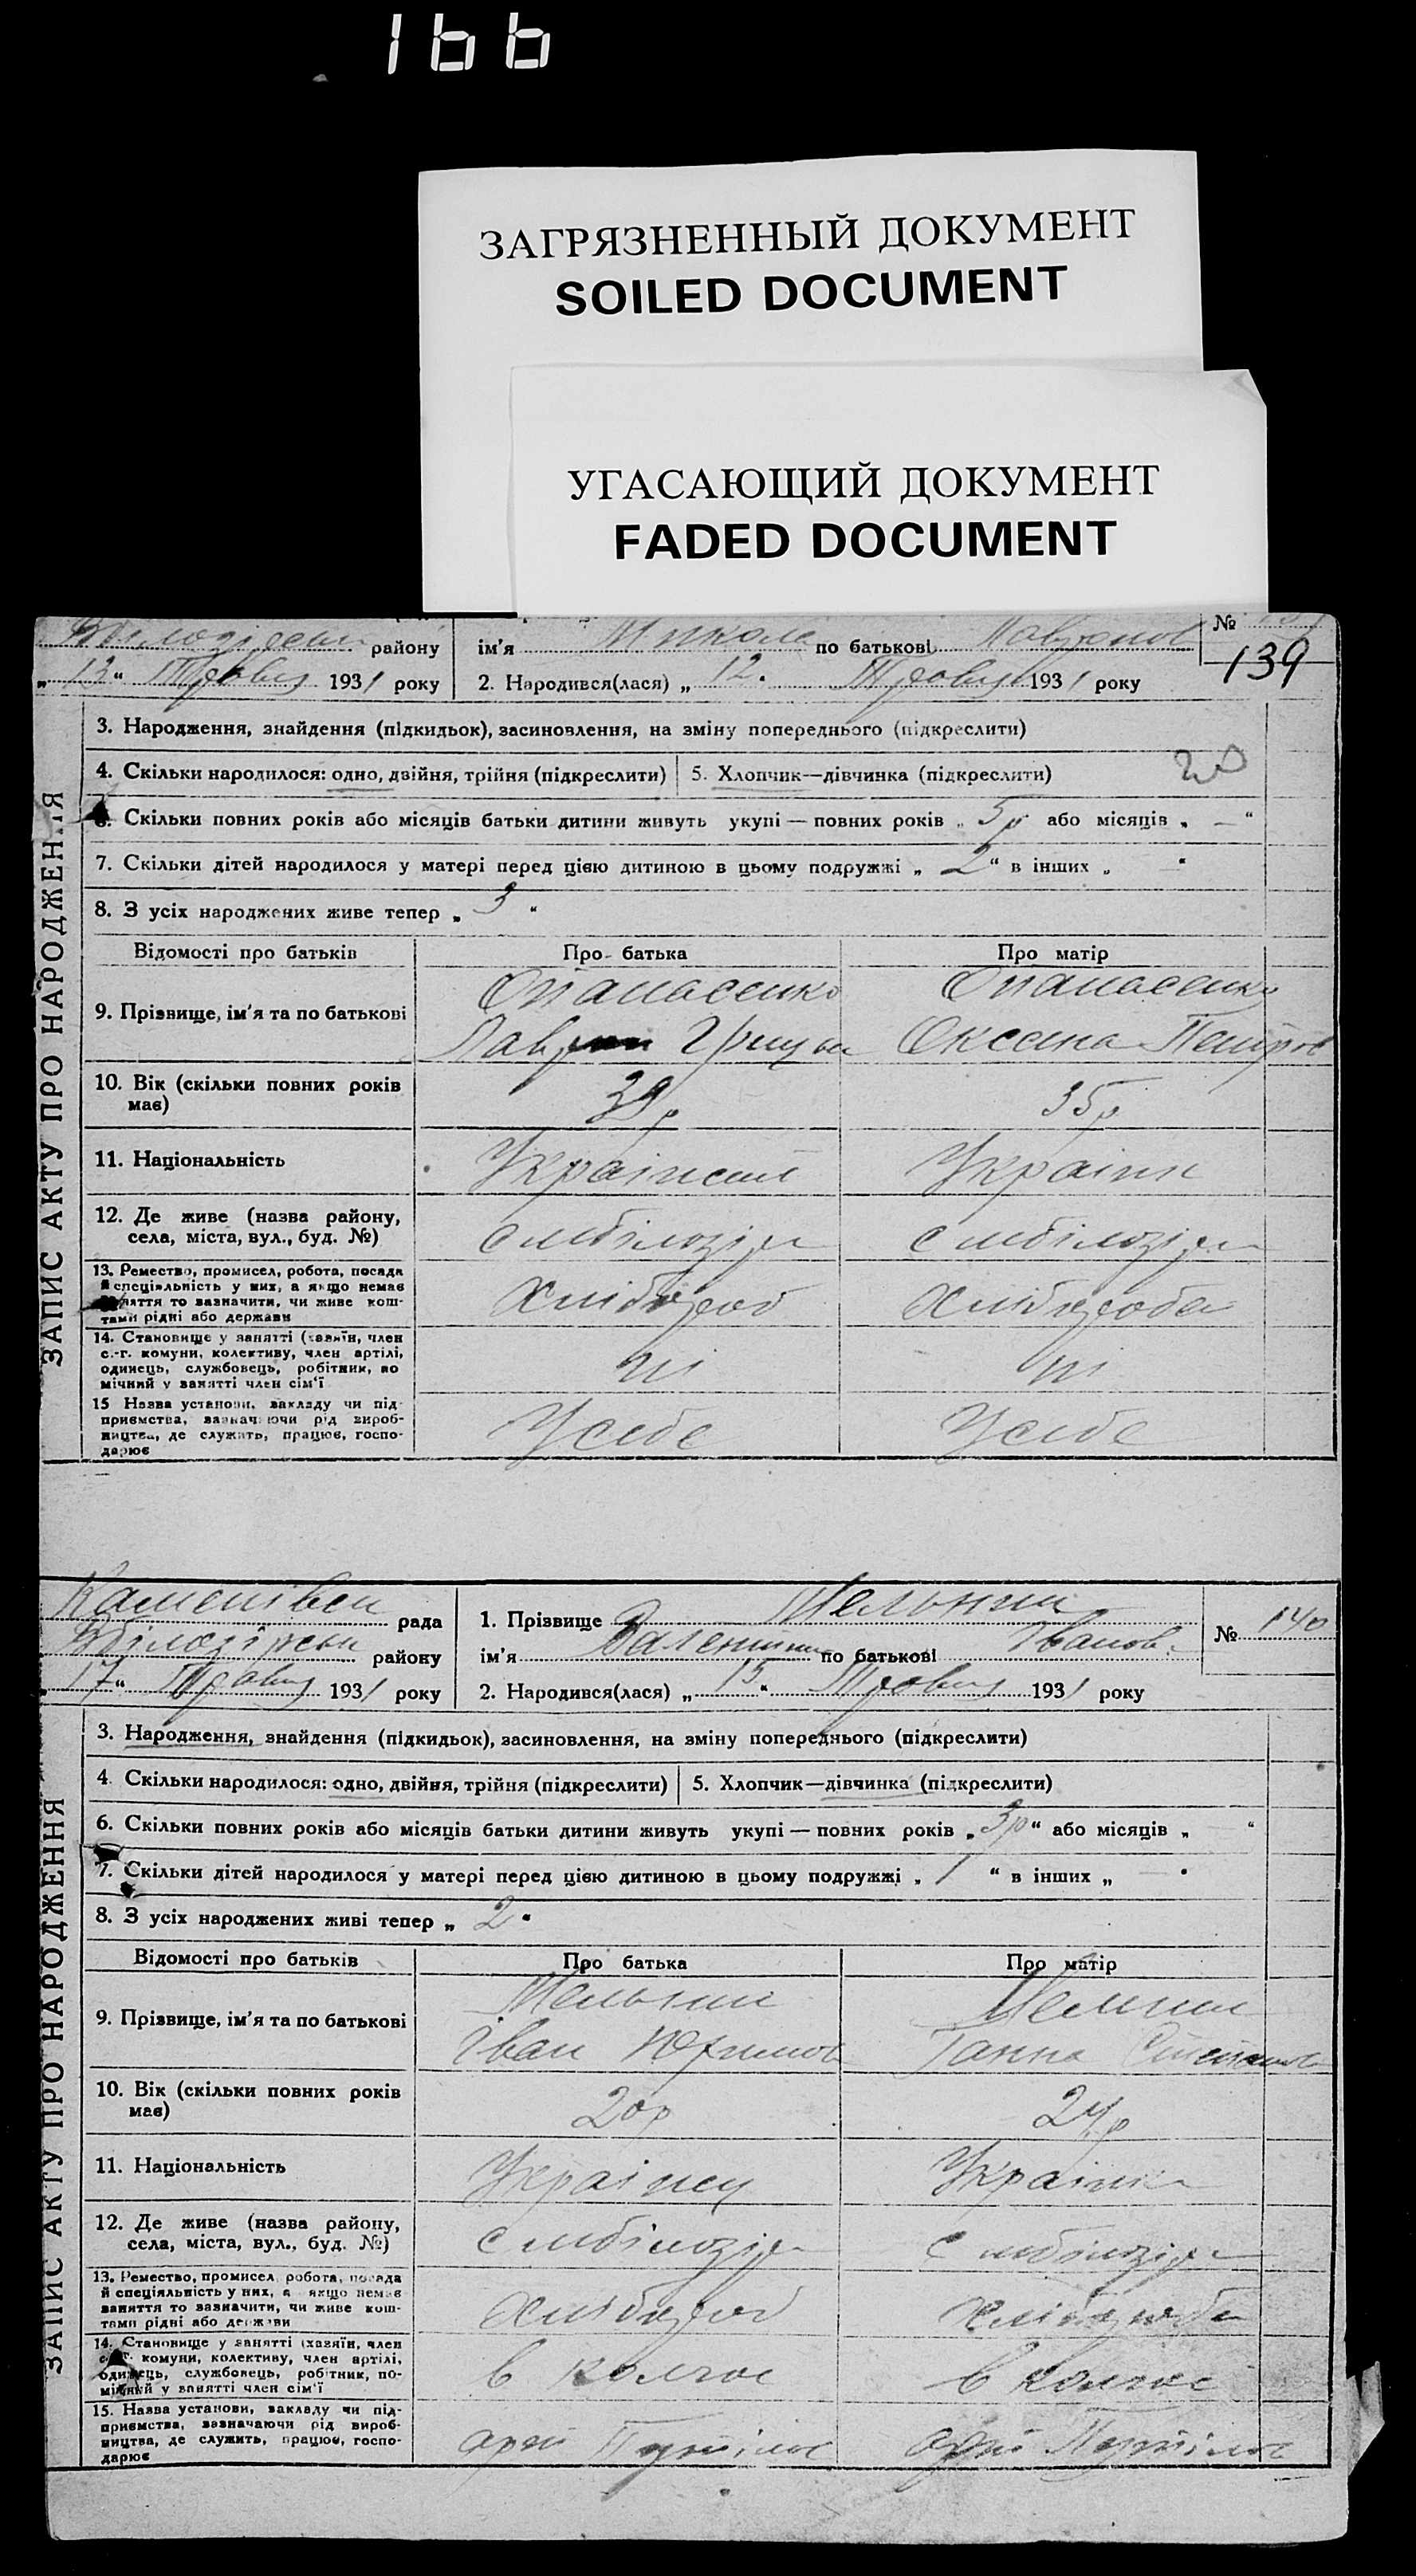 166
ЗАГРЯЗНЕННЫЙ ДОКУМЕНТ
SOILED DOCUMENT
УГАСАЮЩИЙ ДОКУМЕНТ
FADED DOCUMENT
району ім'я Микола по батькові №
139
„ 13 “ Травня 1931 року 2. Народився(лася) „ 12 “ Травня 1931 року
ЗАПИС АКТУ ПРО НАРОДЖЕННЯ
3. Народження, знайдення (підкидьок), засиновлення, на зміну попереднього (підкреслити)
4. Скільки народилося: одно, двійня, трійня (підкреслити) 5. Хлопчик—дівчинка (підкреслити)
6. Скільки повних років або місяців батьки дитини живуть укупі — повних років „ 5 р “ або місяців „ — “
7. Скільки дітей народилося у матері перед цією дитиною в цьому подружжі „ 2 “ в інших „ — “
8. З усіх народжених живе тепер „ 3 “
Відомості про батьків Про батька Про матір
9. Прізвище, ім'я та по батькові
Опанасенко Опанасенко
Оксана
10. Вік (скільки повних років має) 39 р 35 р
11. Національність
12. Де живе (назва району, села, міста, вул., буд. №)
13. Ремество, промисел, робота, посада й спеціяльність у них, а якщо немає заняття то зазначити, чи живе коштами рідні або держави
Хлібороб Хлібороба
14. Становище у занятті (хазяїн, член с.-г. комуни, колективу, член артілі, одинець, службовець, робітник, помічний у занятті член сім'ї
ні ні
15 Назва установи, закладу чи підприємства, зазначаючи рід виробництва, де служить, працює, господарює
У себе У себе
рада 1. Прізвище Мельник № 140
району ім'я по батькові Іванов.
„ 17 “ Травня 1931 року 2. Народився(лася) „ 15 “ Травня 1931 року
ЗАПИС АКТУ ПРО НАРОДЖЕННЯ
3. Народження, знайдення (підкидьок), засиновлення, на зміну попереднього (підкреслити)
4. Скільки народилося: одно, двійня, трійня (підкреслити) 5. Хлопчик—дівчинка (підкреслити)
6. Скільки повних років або місяців батьки дитини живуть укупі — повних років „ 3 р “ або місяців „ “
7. Скільки дітей народилося у матері перед цією дитиною в цьому подружжі „ 1 “ в інших „ — “
8. З усіх народжених живі тепер „ 2 “
Відомості про батьків Про батька Про матір
9. Прізвище, ім'я та по батькові
Мельник Мельник
Іван Ганна
10. Вік (скільки повних років має) 20 р 24 р
11. Національність Українец Українка
12. Де живе (назва району, села, міста, вул., буд. №)
13. Ремество, промисел, робота, посада й спеціяльність у них, а якщо немає заняття то зазначити, чи живе коштами рідні або держави
Хлібороб Хлібороба
14. Становище у занятті (хазяїн, член с.-г. комуни, колективу, член артілі, одинець, службовець, робітник, помічний у занятті член сім'ї
в колгос в колгос
15. Назва установи, закладу чи підприємства, зазначаючи рід виробництва, де служить, працює, господарює